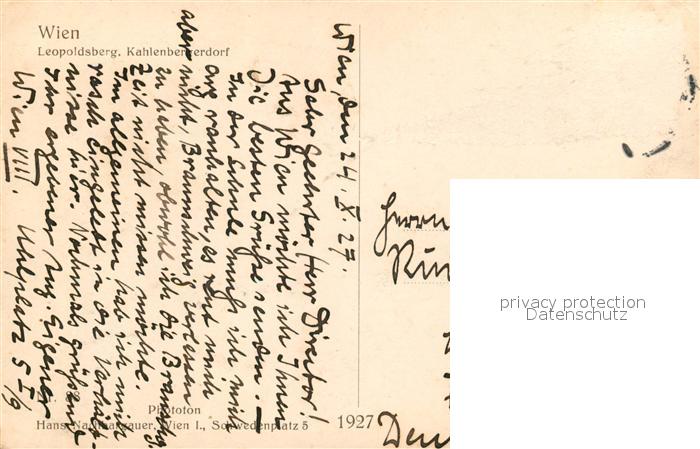 Wien
Leopoldsberg. Kahlenbergerdorf
Wien, den 24. X. 27.
Sehr geehrter Herr Director!
Aus Wien möchte ich Ihnen
die besten Grüße senden. —
In der Schule muß ich mich
arg ranhalten, es reut mich
aber nicht, Braunschweig verlassen
zu haben, obwohl ich die Braunschg.
Zeit nicht missen möchte.
Im allgemeinen hab ich mich
rasch eingelebt in die Verhält-
nisse hier. Nochmals grüßend
Ihr ergebener Aug. Eigener
Wien VIII. Uhlplatz 5 I/9
Phototon
Hans Wien I., Schwedenplatz 5
1927
Herrn
privacy protection
Datenschutz